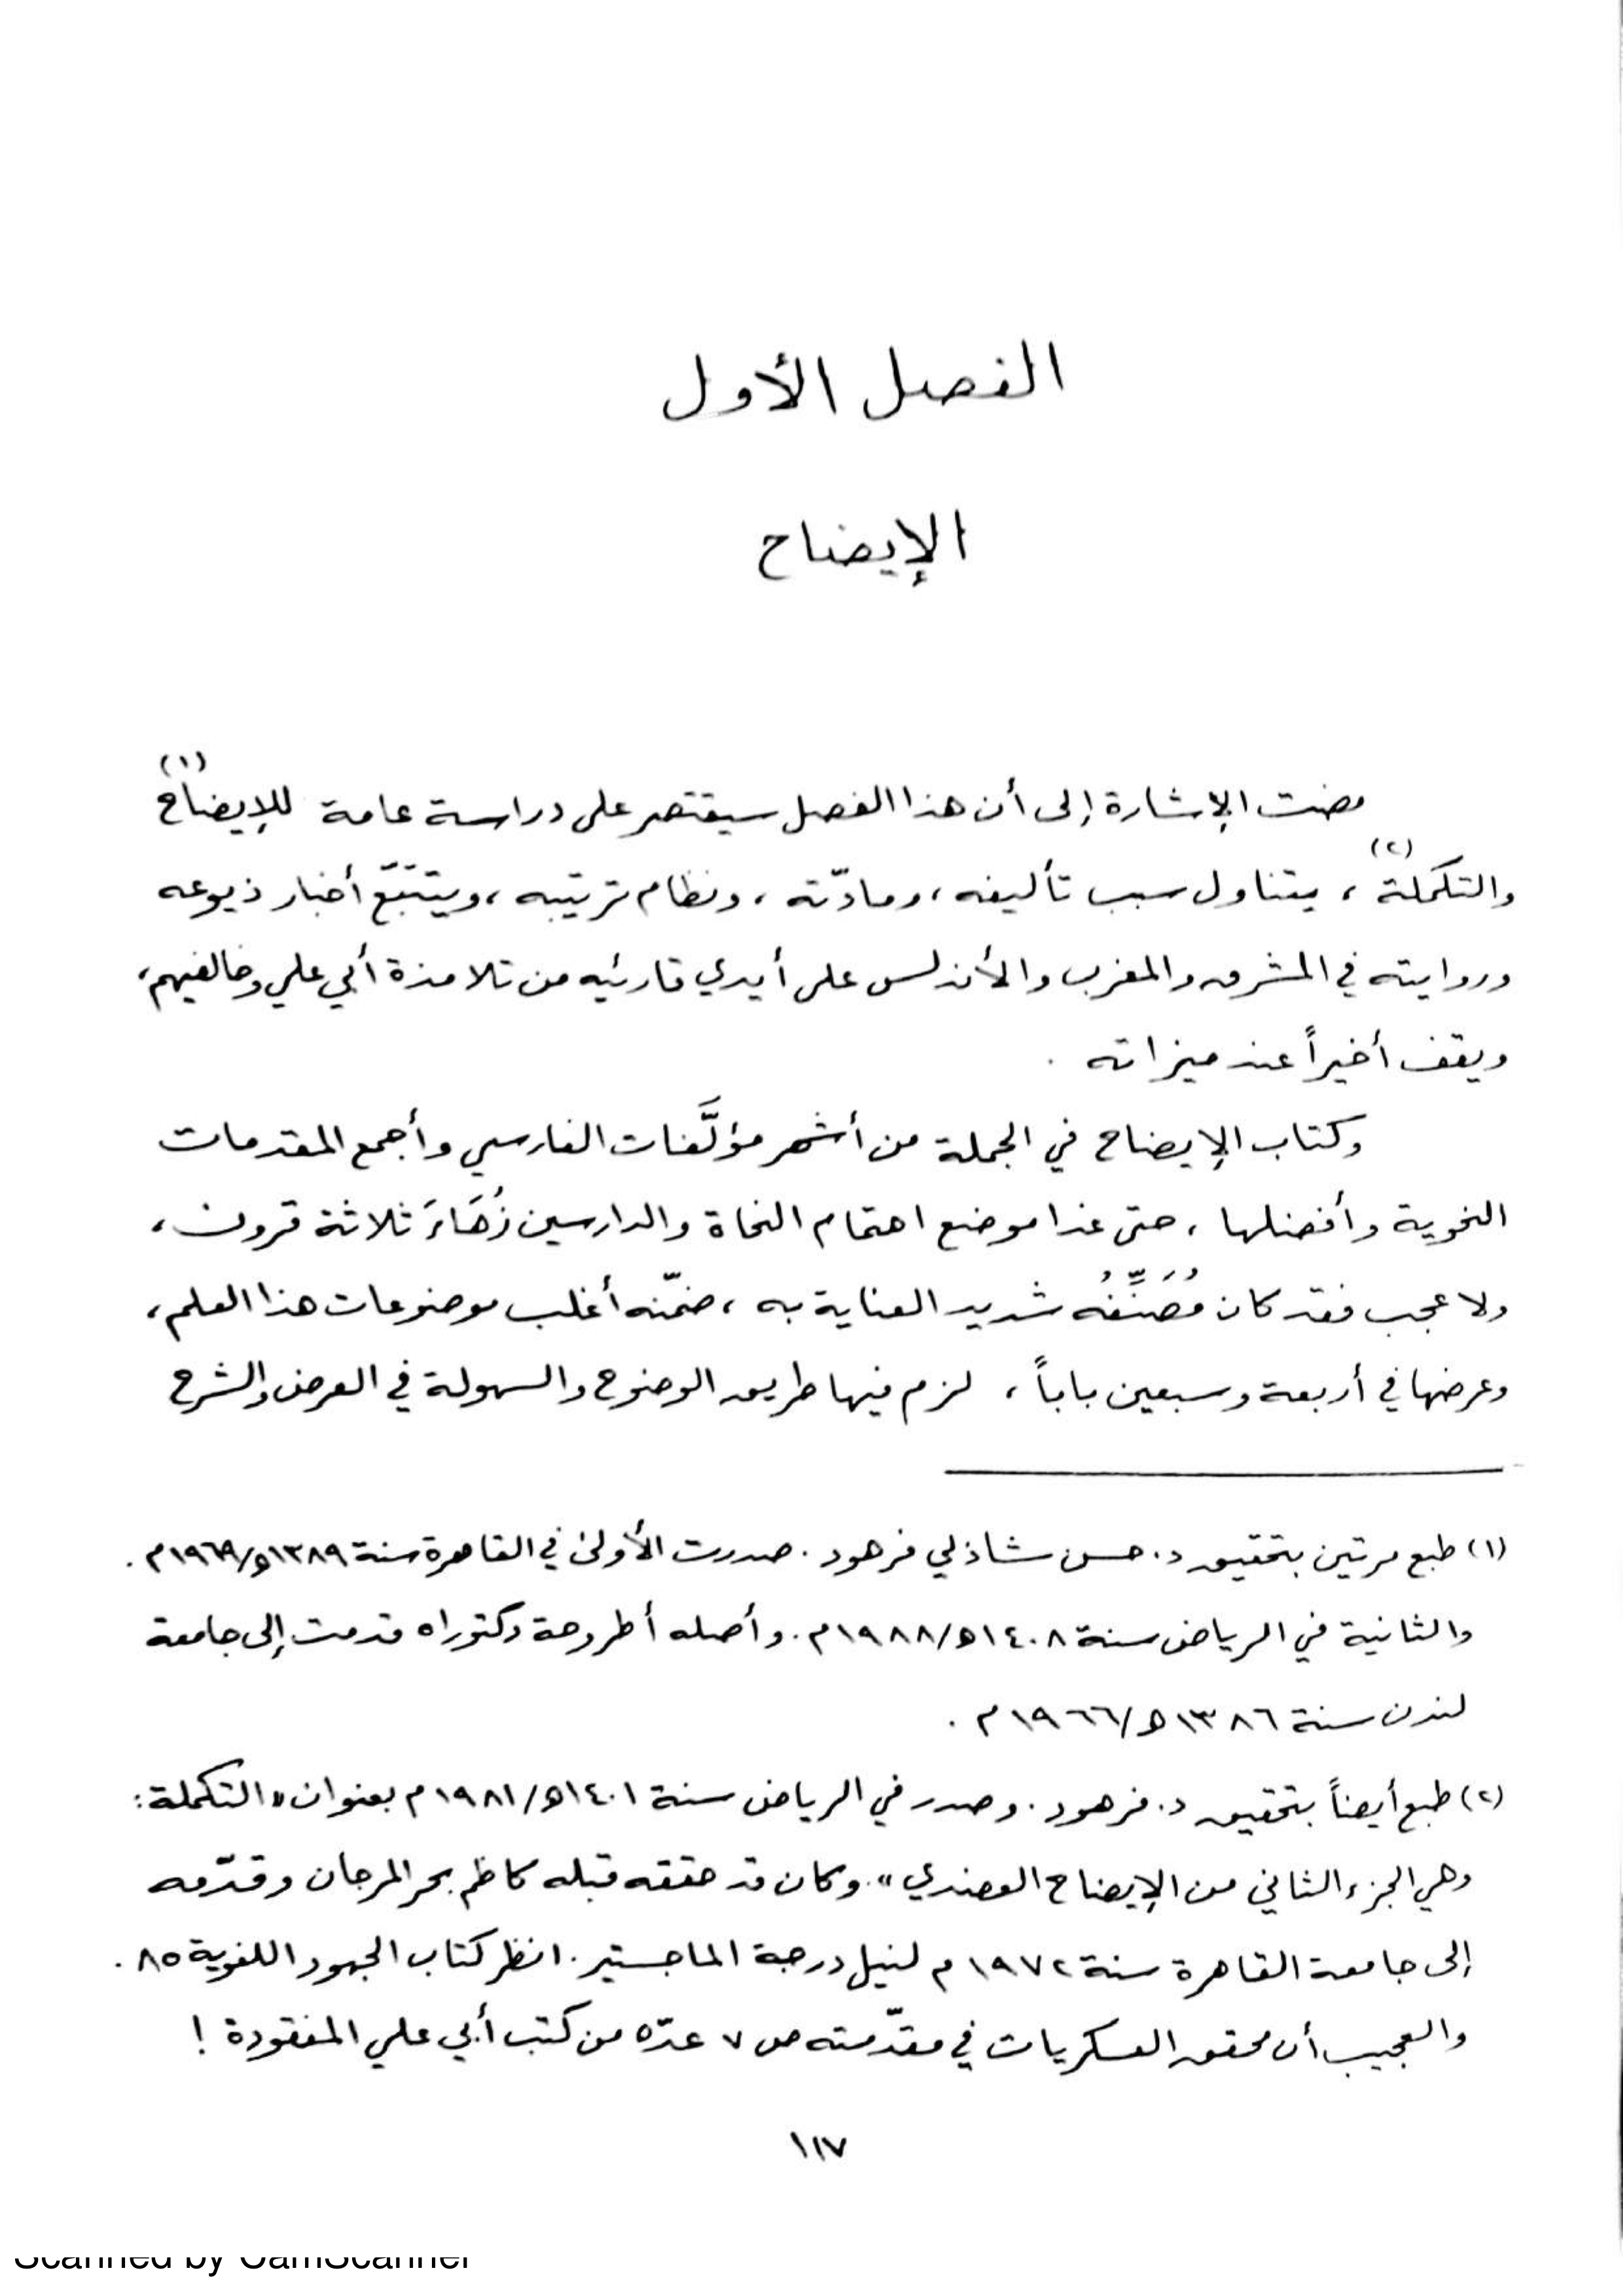 الفصل الأول
الإيضاح
مضت الإشارة إلى أن هذا الفصل سيقتصر على دراسة عامة للإيضاح (١)
والتكملة (٢)، يتناول سبب تأليفه، ومادّته، ونظام ترتيبه، ويتتبّع أخبار ذيوعه
وروايته في المشرق والمغرب والأندلس على أيدي قارئيه من تلامذة أبي علي وخالفيهم،
ويقف أخيراً عند ميزاته .
وكتاب الإيضاح في الجملة من أشهر مؤلَّفات الفارسي وأجمع المقدمات
النحوية وأفضلها، حتى غدا موضع اهتمام النحاة والدارسين زُهَاءَ ثلاثة قرون،
ولا عجب فقد كان مُصَنِّفُه شديد العناية به، ضمّنه أغلب موضوعات هذا العلم،
وعرضها في أربعة وسبعين باباً، لزم فيها طريق الوضوح والسهولة في العرض والشرح
(١) طبع مرتين بتحقيق د. حسن شاذلي فرهود. صدرت الأولى في القاهرة سنة ١٣٨٩ه/١٩٦٩م.
والثانية في الرياض سنة ١٤٠٨ه/١٩٨٨م. وأصله أطروحة دكتوراه قدمت إلى جامعة
لندن سنة ١٣٨٦ه/١٩٦٦م .
(٢) طبع أيضاً بتحقيق د. فرهود. وصدر في الرياض سنة ١٤٠١ه/١٩٨١م بعنوان «التكملة:
وهي الجزء الثاني من الإيضاح العضدي». وكان قد حققه قبله كاظم بحر المرجان وقدّمه
إلى جامعة القاهرة سنة ١٩٧٢م لنيل درجة الماجستير. انظر كتاب الجهود اللغوية ٨٥.
والعجيب أن محقق العسكريات في مقدّمته ص ٧ عدّه من كتب أبي علي المفقودة !
١١٧
Scanned by CamScanner